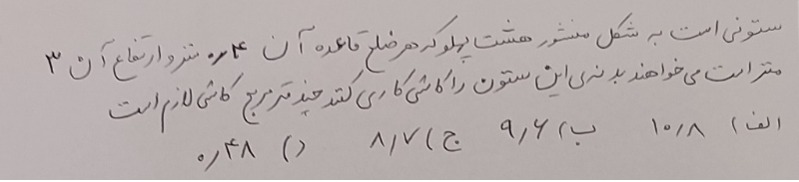 ستونی است به شکل منشور هشت پهلو که هر ضلع قاعده آن ۰٫۴ متر و ارتفاع آن ۳
متر است می‌خواهند بدنه‌ی این ستون را کاشی کاری کنند چند متر مربع کاشی لازم است
الف) ۱۰٫۸ ب) ۹٫۶ ج) ۸٫۷ د) ۰٫۴۸